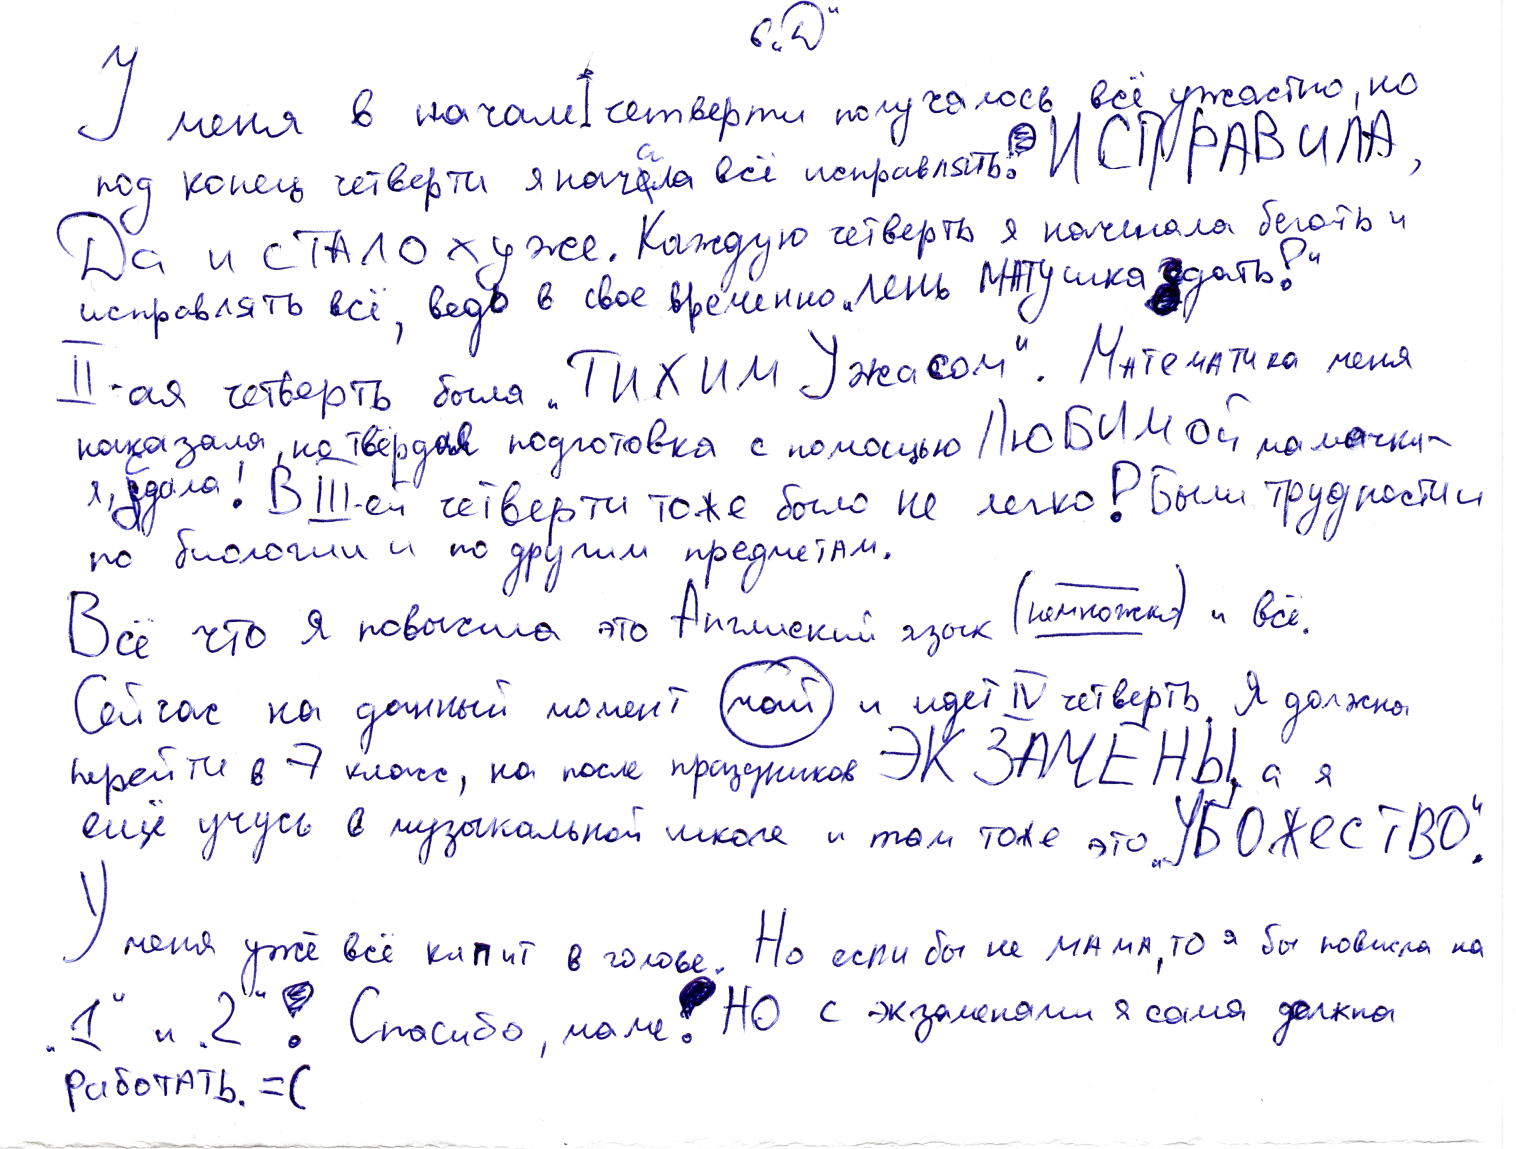 6 „D“
У меня в начале I четверти получалось всё ужастно, но
под конец четверти я начала всё исправлять! ИСПРАВИЛА,
Да и СТАЛО хуже. Каждую четверть я начинала бегать и
исправлять всё, ведь в свое временно „лень МАТушка сдать!“
II-ая четверть была „ТИХИМ Ужасом“. Математика меня
наказала, но твёрдая подготовка с помощью ЛЮБИМОЙ мамочки-
я, сдала! В III-ей четверти тоже было не легко! Были трудности и
по биологии и по другим предметам.
Всё что я повысила это Английский язык (немножко) и всё.
Сейчас на данный момент май и идет IV четверть. Я должна
перейти в 7 класс, но после праздников ЭКЗАМЕНЫ, а я
ещё учусь в музыкальной школе и там тоже это „УБОЖЕСТВО“.
У меня уже всё кипит в голове. Но если бы не мама, то я бы повисла на
„1“ и „2“! Спасибо, маме! НО с экзаменами я сама должна
работать. =(